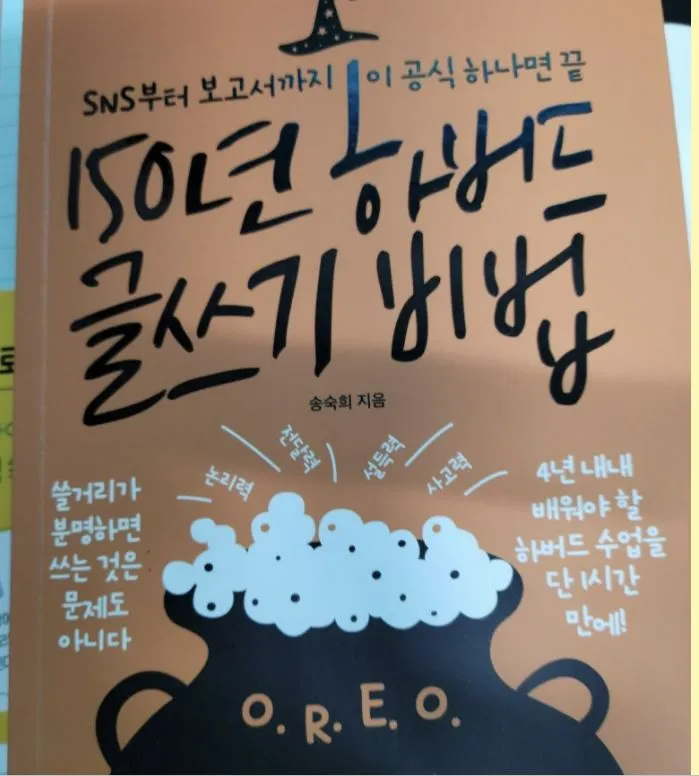 SNS부터 보고서까지 이 공식 하나면 끝
150년 하버드
글쓰기 비법
송숙희 지음
논리력
전달력
설득력
사고력
쓸거리가
분명하면
쓰는 것은
문제도
아니다
4년 내내
배워야 할
하버드 수업을
단 1시간
만에!
O.R.E.O.